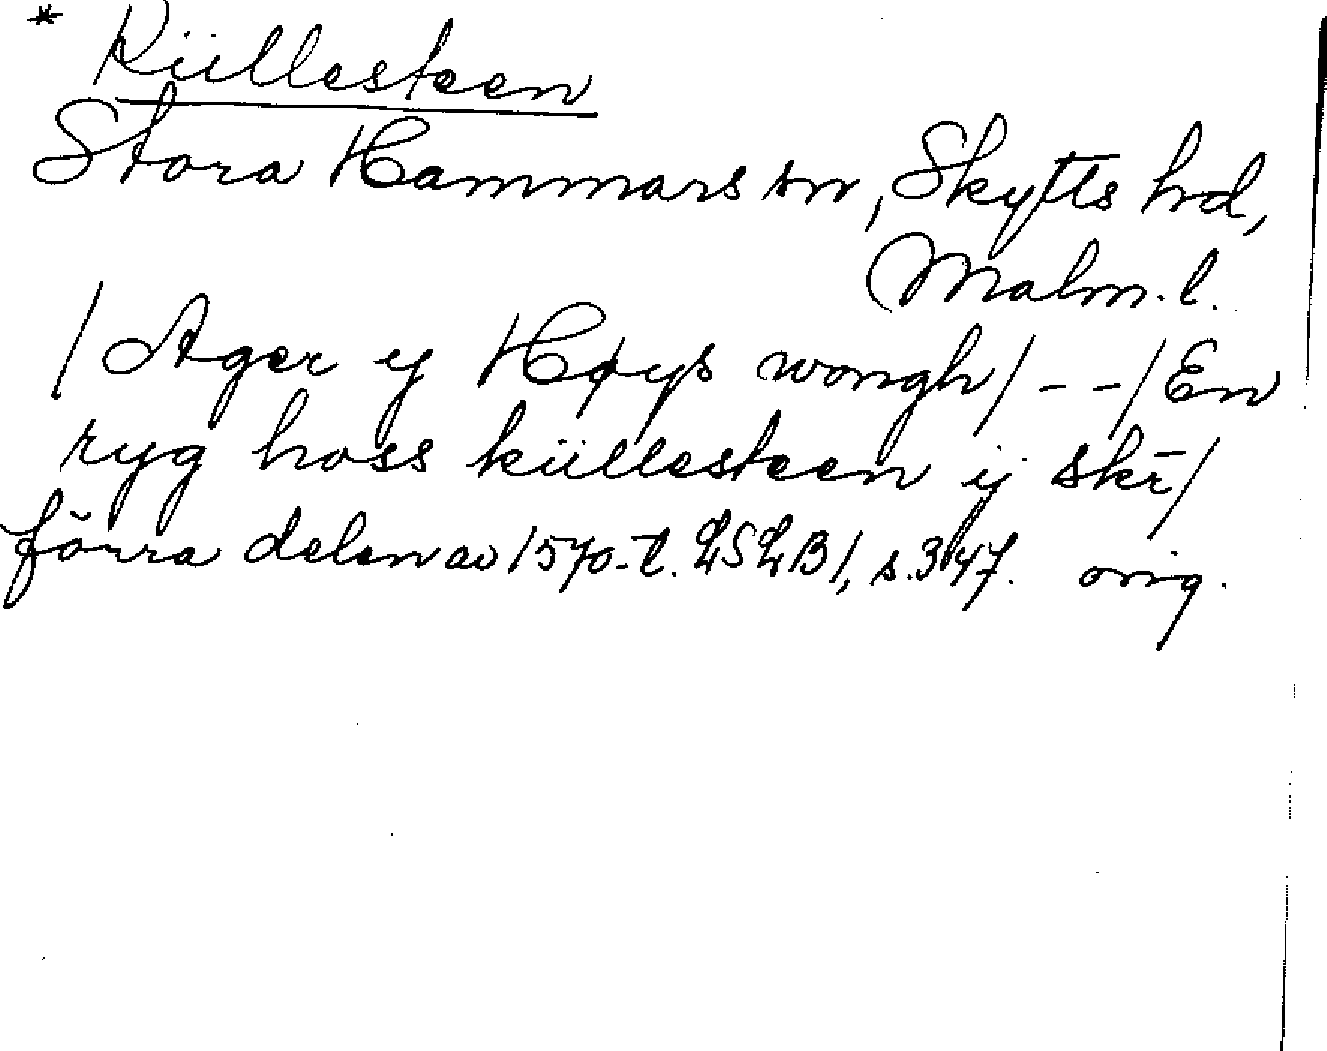 * Küllesteen
Stora Hammars sn, Skytts hd,
Malm. l.
/Ager ij Høys wongh/ - - /En
ryg hoss küllesteen ij skr̄/
förra delen av 1570-t. LSLB1, s. 347. orig.